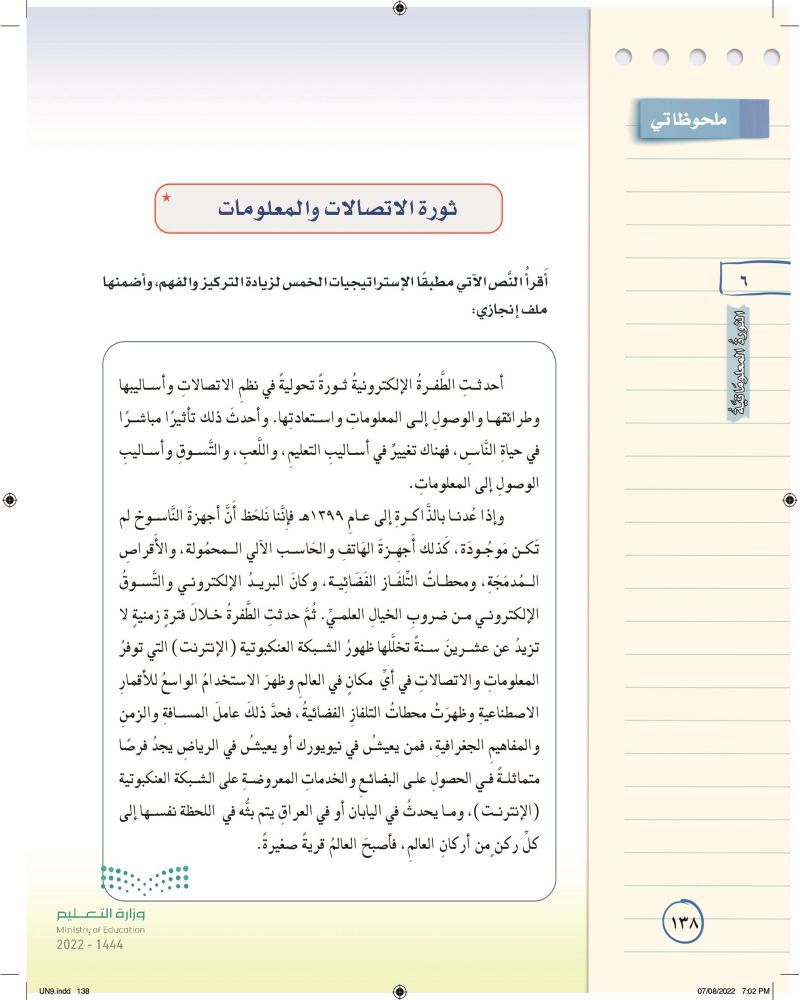 ملحوظاتي
٦
الثورةُ المعلوماتيَّةُ
ثورة الاتصالات والمعلومات
أَقرأُ النَّص الآتي مطبقًا الإستراتيجيات الخمس لزيادة التركيز والفهم، وأضمنها
ملف إنجازي:
أحدثـتِ الطَّفـرةُ الإلكترونيةُ ثـورةً تحوليةً في نظمِ الاتصالاتِ وأسـاليبها
وطرائقهـا والوصولِ إلـى المعلوماتِ واسـتعادتِها. وأحدثَ ذلك تأثيرًا مباشـرًا
في حياةِ النَّاسِ، فهناك تغييرٌ في أساليبِ التعليمِ، واللَّعبِ، والتَّسـوقِ وأسـاليبِ
الوصولِ إلى المعلوماتِ.
وإذا عُدنـا بالذَّاكـرةِ إلى عـامِ ١٣٩٩هـ فإنَّنا نَلحَظ أنَّ أجهزةَ النَّاسـوخ لم
تَكـن مَوجُـودَة، كَذلك أجهـزة الهَاتفِ والحَاسـب الآلي الـمحمُولة، والأَقراصِ
الـمُدمَجَةِ، ومحطـاتُ التِّلفَـاز الفَضَائيـة، وكانَ البريـدُ الإلكترونـي والتَّسـوقُ
الإلكترونـي مـن ضروبِ الخيالِ العلمـيِّ. ثُمَّ حدثتِ الطَّفرةُ خـلالَ فترةٍ زمنيةٍ لا
تزيدُ عن عشـرينَ سـنةً تخلَّلها ظهورُ الشـبكة العنكبوتية (الإنترنت) التي توفرُ
المعلوماتِ والاتصالاتِ في أيِّ مكانٍ في العالمِ وظهرَ الاستخدامُ الواسعُ للأقمارِ
الاصطناعيةِ وظهرَتْ محطاتُ التلفازِ الفضائيةُ، فحدَّ ذلكَ عاملَ المسـافةِ والزمنِ
والمفاهيمِ الجغرافيةِ، فمن يعيشُ في نيويورك أو يعيشُ في الرياضِ يجدُ فرصًا
متماثلـةً فـي الحصولِ علـى البضائـعِ والخدماتِ المعروضـةِ على الشـبكة العنكبوتية
(الإنترنـت)، ومـا يحدثُ في اليابان أو في العراقِ يتم بثُّه في اللحظة نفسـها إلى
كلِّ ركنٍ من أركانِ العالمِ، فأصبحَ العالمُ قريةً صغيرةً.
وزارة التعـــليم
Ministry of Education
2022 - 1444
١٣٨
UN9.indd 138
07/08/2022 7:02 PM